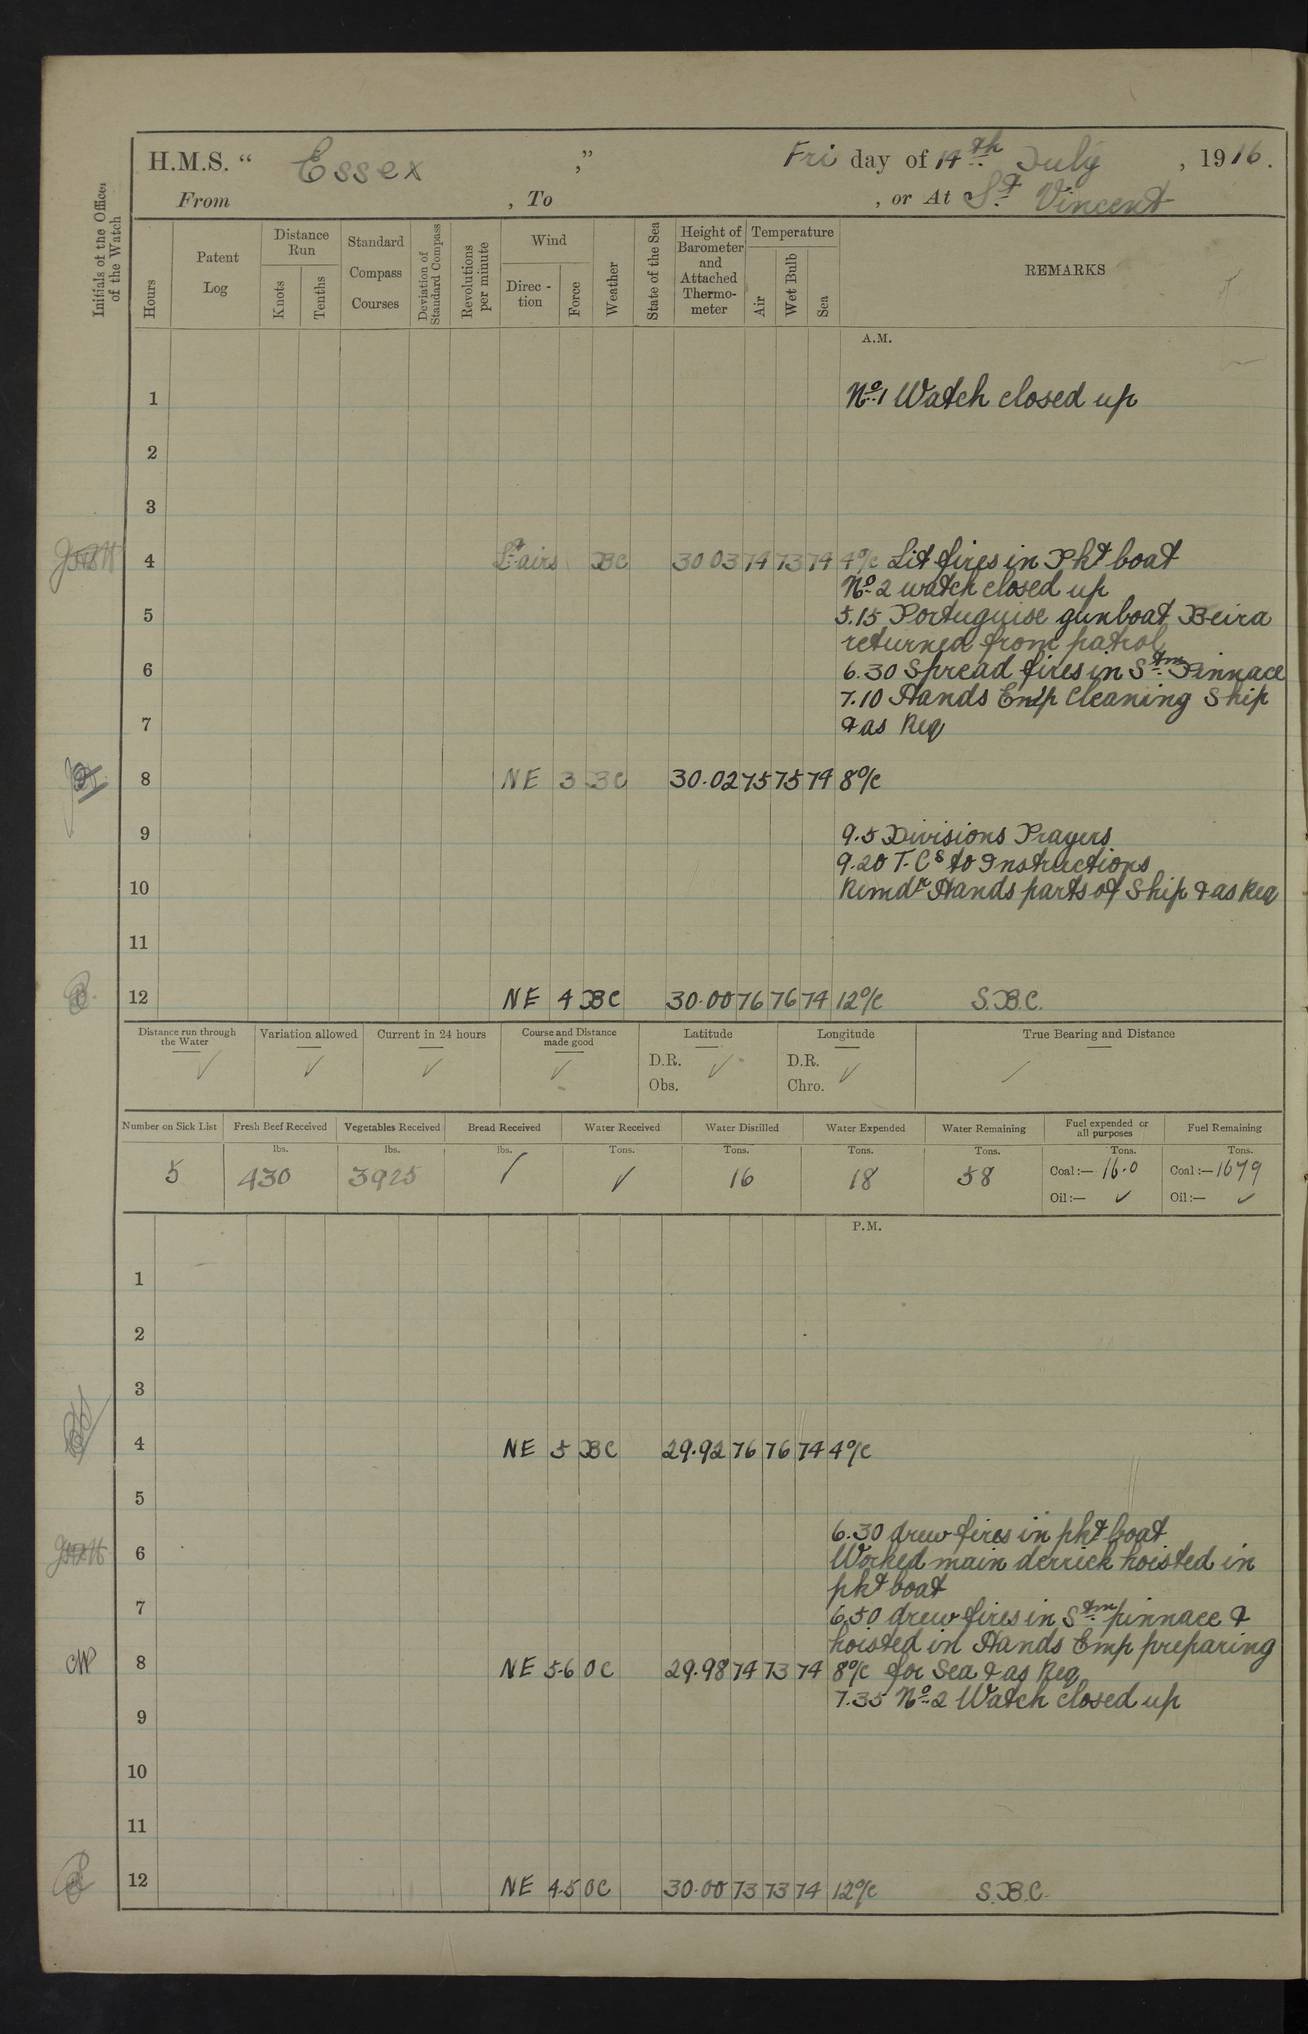 H.M.S. “ Essex ” Fri day of 14th July , 1916.
From , To , or At St Vincent
Initials of the Officer of the Watch
Hours
Patent Log
Distance Run
Knots
Tenths
Standard Compass Courses
Deviation of Standard Compass
Revolutions per minute
Wind
Direc-tion
Force
Weather
State of the Sea
Height of Barometer and Attached Thermo-meter
Temperature
Air
Wet Bulb
Sea
REMARKS
A.M.
1 No. 1 Watch closed up
2
3
4 Lt airs BC 30 03 74 73 74 4 o/c Lit fires in Pkt boat
No. 2 watch closed up
5 5.15 Portuguise gunboat Beira
returned from patrol
6 6.30 Spread fires in Stm Pinnace
7.10 Hands Emp Cleaning Ship
7 & as Req
8 NE 3 BC 30.02 75 75 74 8 o/c
9 9.5 Divisions Prayers
9.20 T.Cs to Instructions
10 Remdr Hands parts of Ship & as Req
11
12 NE 4 BC 30.00 76 76 74 12 o/c S.B.C.
Distance run through the Water
Variation allowed
Current in 24 hours
Course and Distance made good
Latitude
Longitude
True Bearing and Distance
D.R. ✓ D.R. ✓
Obs. Chro.
Number on Sick List
Fresh Beef Received
Vegetables Received
Bread Received
Water Received
Water Distilled
Water Expended
Water Remaining
Fuel expended or all purposes
Fuel Remaining
lbs. lbs. lbs. Tons. Tons. Tons. Tons. Tons. Tons.
5 430 3925 ✓ ✓ 16 18 58 Coal :— 16.0 Coal :— 1679
Oil :— ✓ Oil :— ✓
P.M.
1
2
3
4 NE 5 BC 29.92 76 76 74 4 o/c
5
6.30 drew fires in pkt boat
6 Worked main derrick hoisted in
pkt boat
7 6.50 drew fires in Stm pinnace &
hoisted in Hands Emp preparing
8 NE 5-6 OC 29.98 74 73 74 8 o/c for Sea & as Req
7.35 No. 2 Watch closed up
9
10
11
12 NE 4.5 OC 30.00 73 73 74 12 o/c S.B.C.